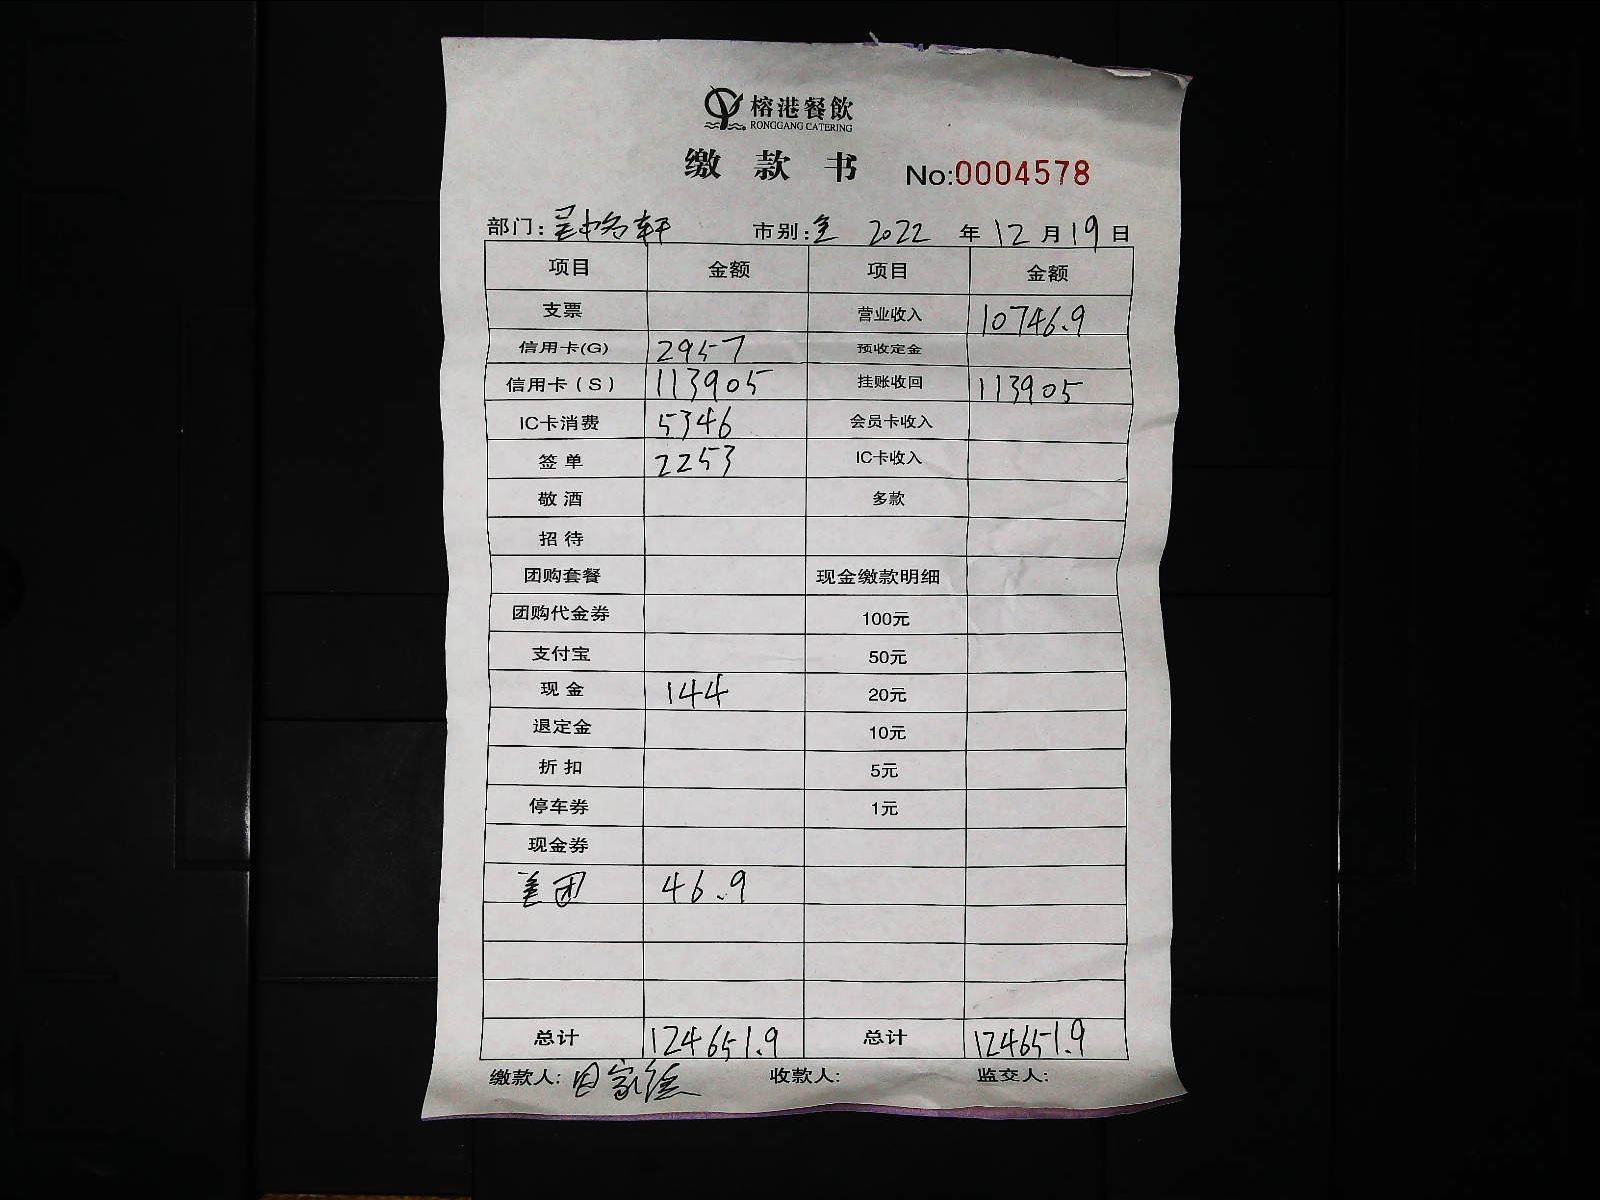 榕港餐飲
RONGGANG CATERING
缴款书 No:0004578
部门: 轩 市别:全 2022年12月19日
项目 金额 项目 金额
支票 营业收入 10746.9
信用卡(G) 2957 预收定金
信用卡(S) 113905 挂账收回 113905
IC卡消费 5346 会员卡收入
签单 2253 IC卡收入
敬酒 多款
招待
团购套餐 现金缴款明细
团购代金券 100元
支付宝 50元
现金 144 20元
退定金 10元
折扣 5元
停车券 1元
现金券
美团 46.9
总计 124651.9 总计 124651.9
缴款人: 田家 收款人: 监交人: